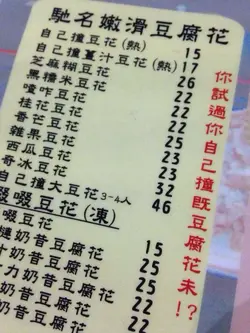 馳名嫩滑豆腐花
自己撞豆花(熱) 15
自己撞薑汁豆花(熱) 17
芝麻糊豆花 26
黑糯米豆花 22
咋豆花 22
桂花豆花 22
香芒豆花 25
雜果豆花 25
西瓜豆花 23
奇冰豆花 32
自己撞大豆花3-4人 46
啜啜豆花(凍)
啜豆花 15
奶昔豆腐花 25
奶昔豆腐花 25
力奶昔豆腐花 22
奶昔豆腐花 22
豆腐花 22
你試過你自己撞既豆腐花未!?